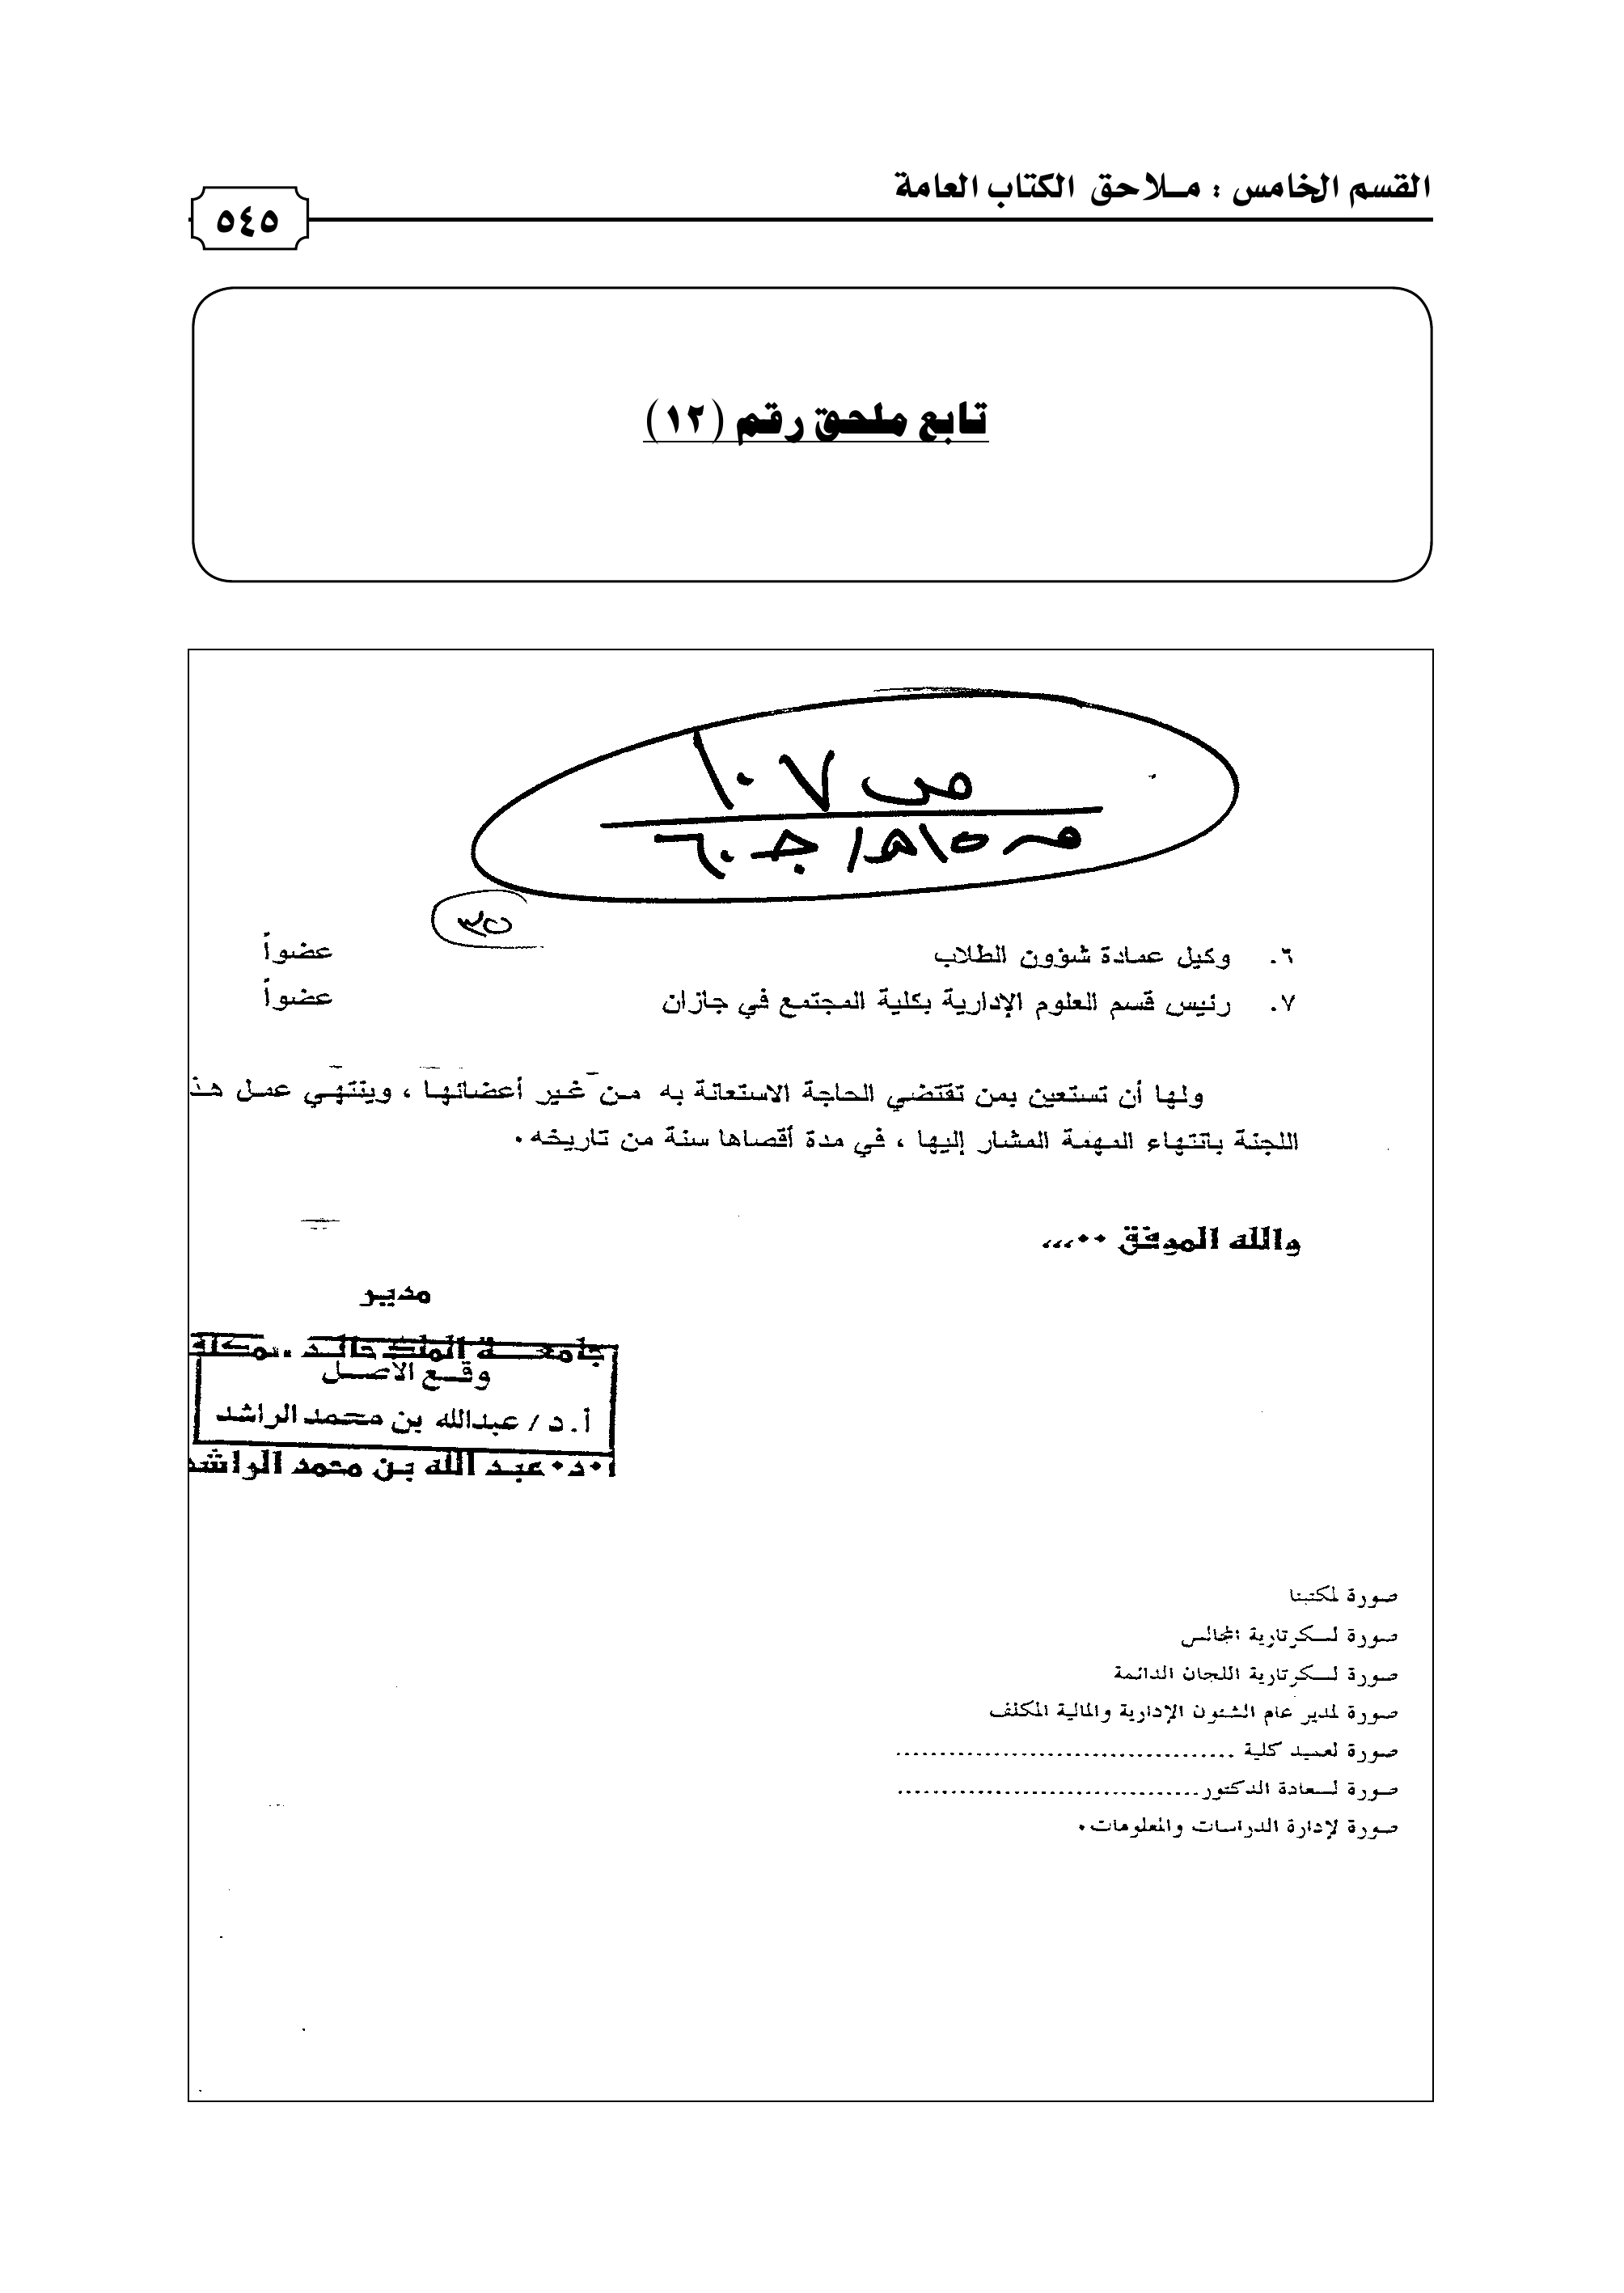 القسم الخامس : مـلاحق الكتاب العامة
٥٤٥
تابع ملحق رقم (١٢)
ص ١٠٧
٣٥
٦. وكيل عمادة شؤون الطلاب عضواً
٧. رئيس قسم العلوم الإدارية بكلية المجتمع في جازان عضواً
ولها أن تستعين بمن تقتضي الحاجة الاستعانة به من غير أعضائها ، وينتهي عمل هذ
اللجنة بانتهاء المهمة المشار إليها ، في مدة أقصاها سنة من تاريخه .
والله الموفق ..،،،
مدير
جامعة الملك خالد
وقع الأصل
أ.د/ عبدالله بن محمد الراشد
أ.د. عبد الله بن محمد الراشد
صورة لمكتبنا
صورة لسكرتارية المجالس
صورة لسكرتارية اللجان الدائمة
صورة لمدير عام الشئون الإدارية والمالية المكلف
صورة لعميد كلية ......................................
صورة لسعادة الدكتور..................................
صورة لإدارة الدراسات والمعلومات.